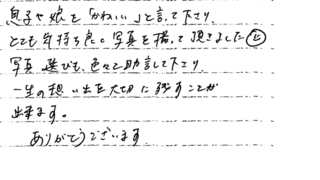 息子や娘を「かわいい」と言って下さり、
とても気持ち良く写真を撮って頂きました
写真選びも、色々と助言して下さり、
一生の想い出を大切に残すことが
出来ます。
ありがとうございます。